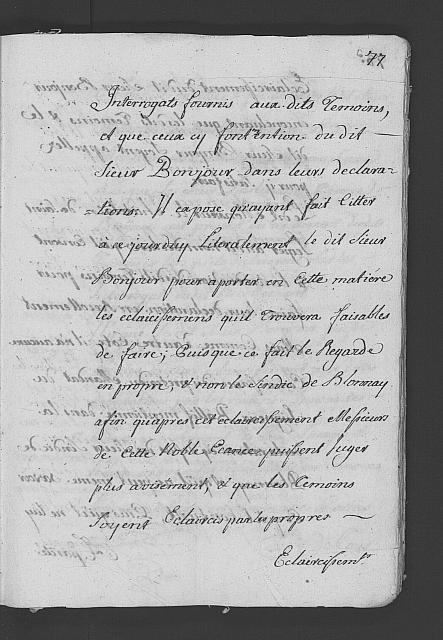 77
Interrogats fournis aux dits Temoins,
et que ceux cy font mention du dit
Sieur Bonjour dans leurs declara-
-tions. Il a posé qu'ayant fait Citter
à ce jourduy Literalement le dit Sieur
Bonjour pour aporter en Cette matiere
les eclaircisemens qu'il Trouvera faisables
de faire; Puisque ce fait le Regarde
en propre, & non le Sindic de Blonnay
afin qu'apres cet eclaircissement Messieurs
de Cette Noble Ecance puissent Juger
plus avisement, & que les Temoins
Soyent Eclaircis par les propres
Eclaircissemts